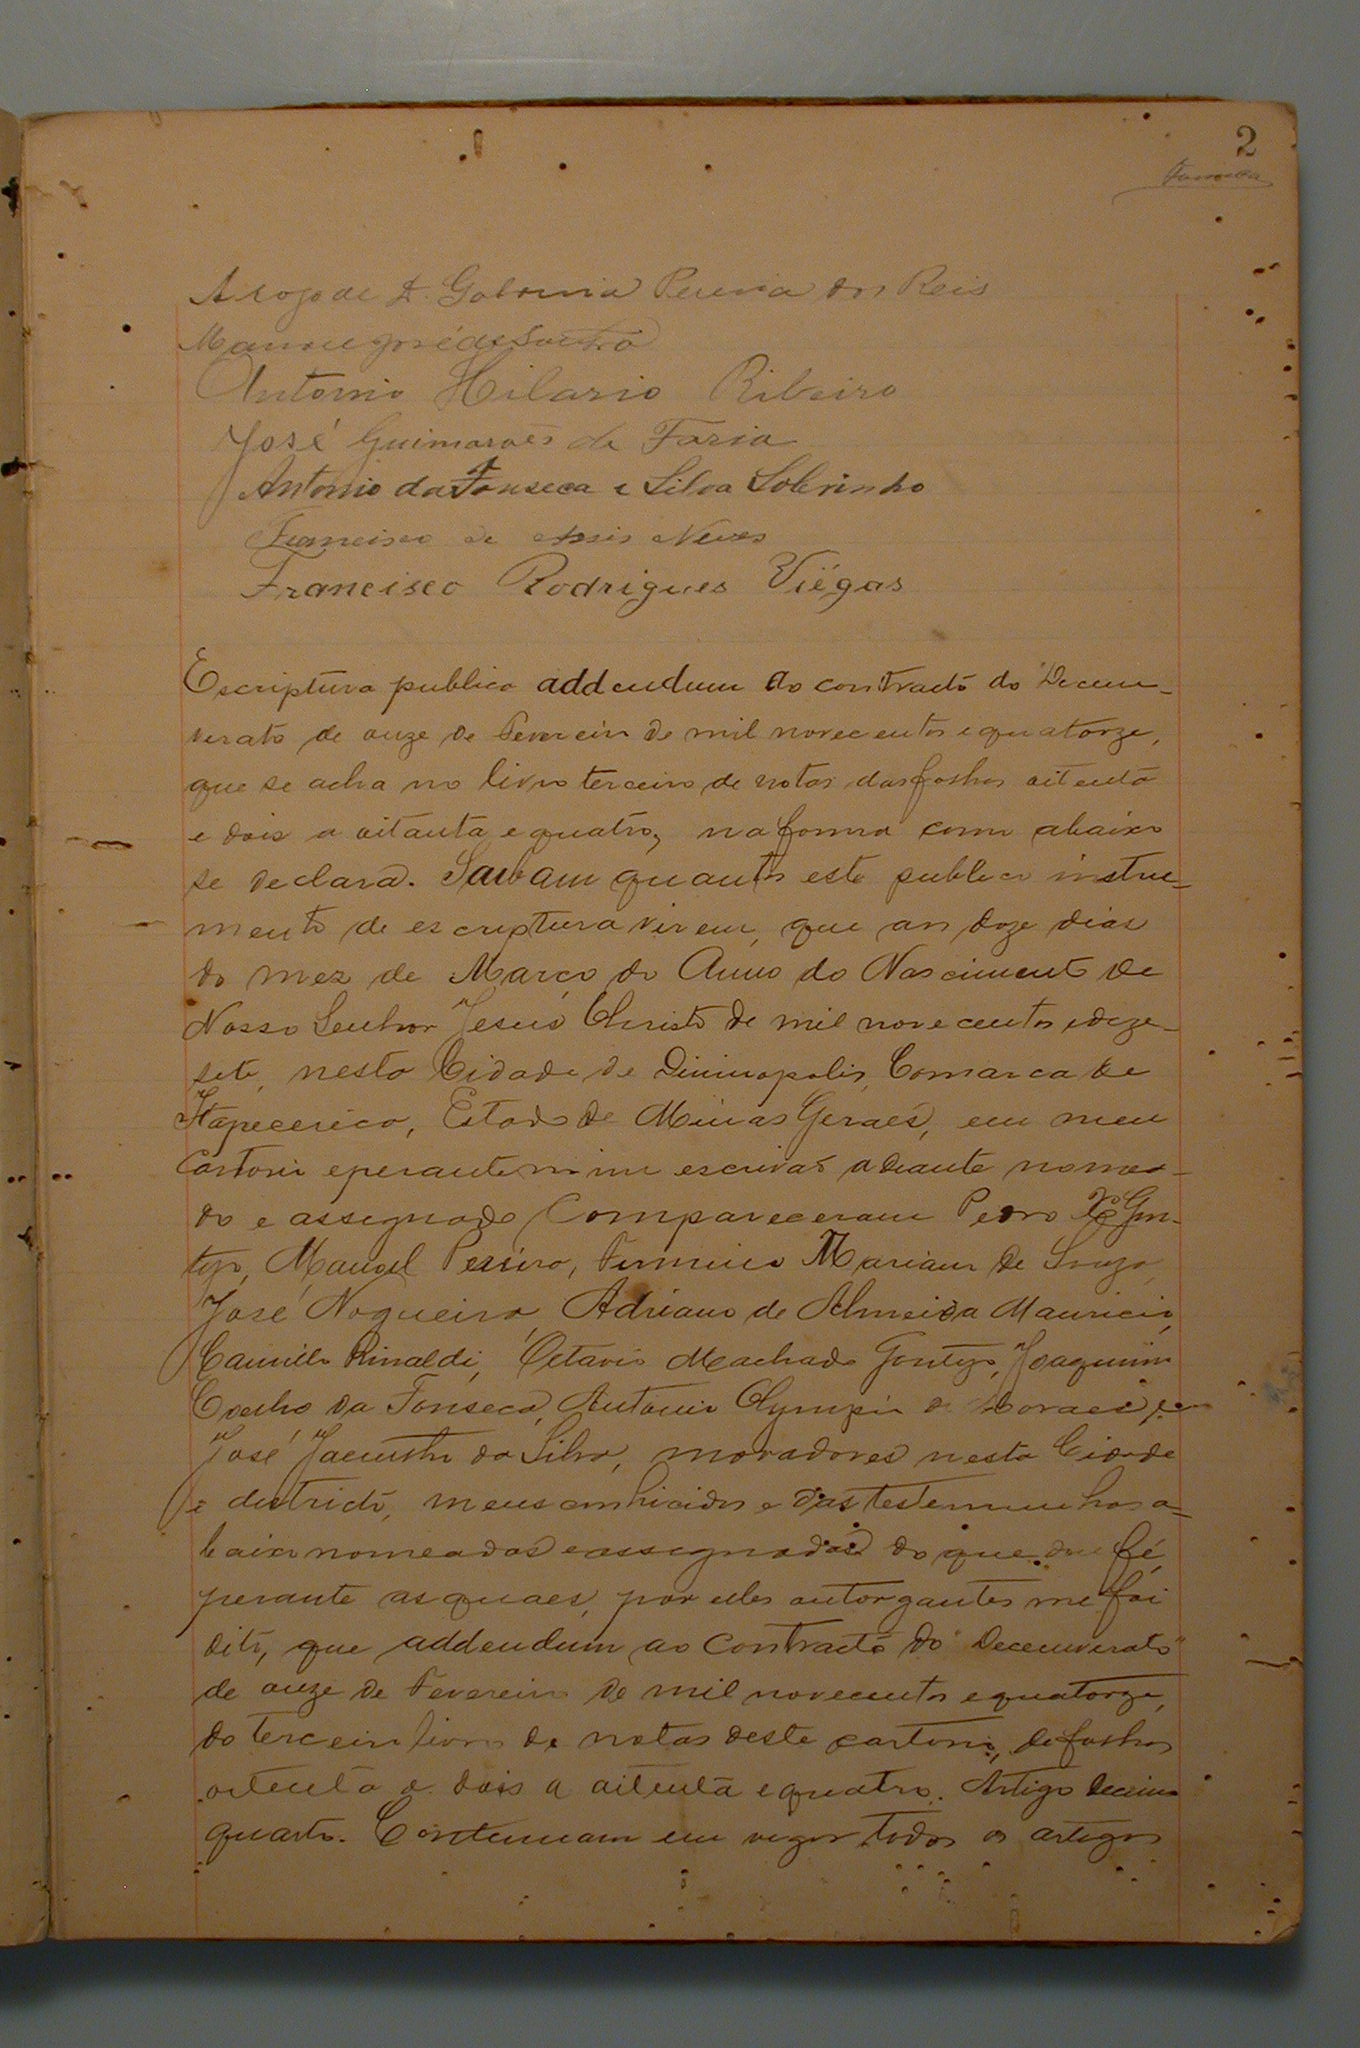 2
Fonseca
A rogo de D. Pereira dos Reis
Manoel José de
Antonio Hilario Ribeiro
José Guimaraẽs de Faria
Antonio da Fonseca e Silva Sobrinho
Francisco de Assis Neves
Francisco Rodrigues Viégas
Escriptura publica addendum ao contracto do "Decem-
verato de onze de Fevereiro de mil novecentos e quatorze,
que se acha no livro terceiro de notas das folhas oitenta
e dois a oitenta e quatro, na forma como abaixo
se declara. Saibam quantos este publico instru-
mento de escriptura virem, que aos doze dias
do mez de Março do Anno do Nascimento de
Nosso Senhor Jesus Christo de mil novecentos e deze-
sete, nesta Cidade de Divinopolis, Comarca de
Itapecerica, Estado de Minas Geraes, em meu
Cartorio e perante mim escrivão adiante nomea-
do e assignado Compareceram Pedro X Gon-
tijo, Manoel Pereira, Firmino Mariano de Souza,
José Nogueira, Adriano de Almeida Mauricio,
Camillo Rinaldi, Octavio Machado Gontijo, Joaquim
Coelho da Fonseca, Antonio Olympio de Moraes, e
José Jacintho da Silva, moradores nesta Cidade
e districto, meus conhecidos e das testemunhas a-
baixo nomeadas e assignadas do que dou fé,
perante as quaes, por elles outorgantes me foi
dito, que addendum ao Contracto do "Decemverato"
de onze de Fevereiro de mil novecentos e quatorze,
do terceiro livro de notas deste cartorio, de folhas
oitenta e dois a oitenta e quatro. Artigo Decimo
quarto. Continuam em vigor todos os artigos